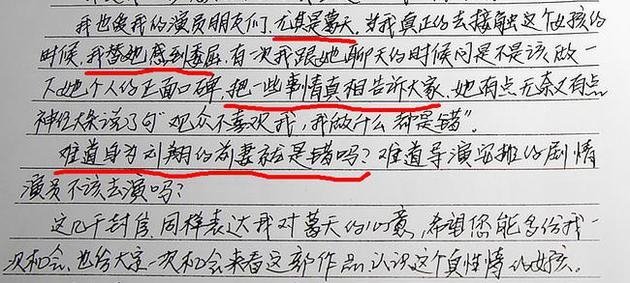 我也像我的演员朋友们.尤其是葛天.当我真正的去接触这个女孩的
时候.我替她感到委屈.有一次我跟她聊天的时候问是不是该做一
下她个人的正面口碑,把一些事情真相告诉大家.她有点无奈又有点
神经大条说了句"观众不喜欢我,我做什么都是错".
难道身为刘翔的前妻就是错吗?难道导演安排的剧情
演员不该去演吗?
这几千封信.同样表达我对葛天的心意,希望您能多给我一
次机会.也给大家一次机会来看这部作品.认识这个真性情的女孩.